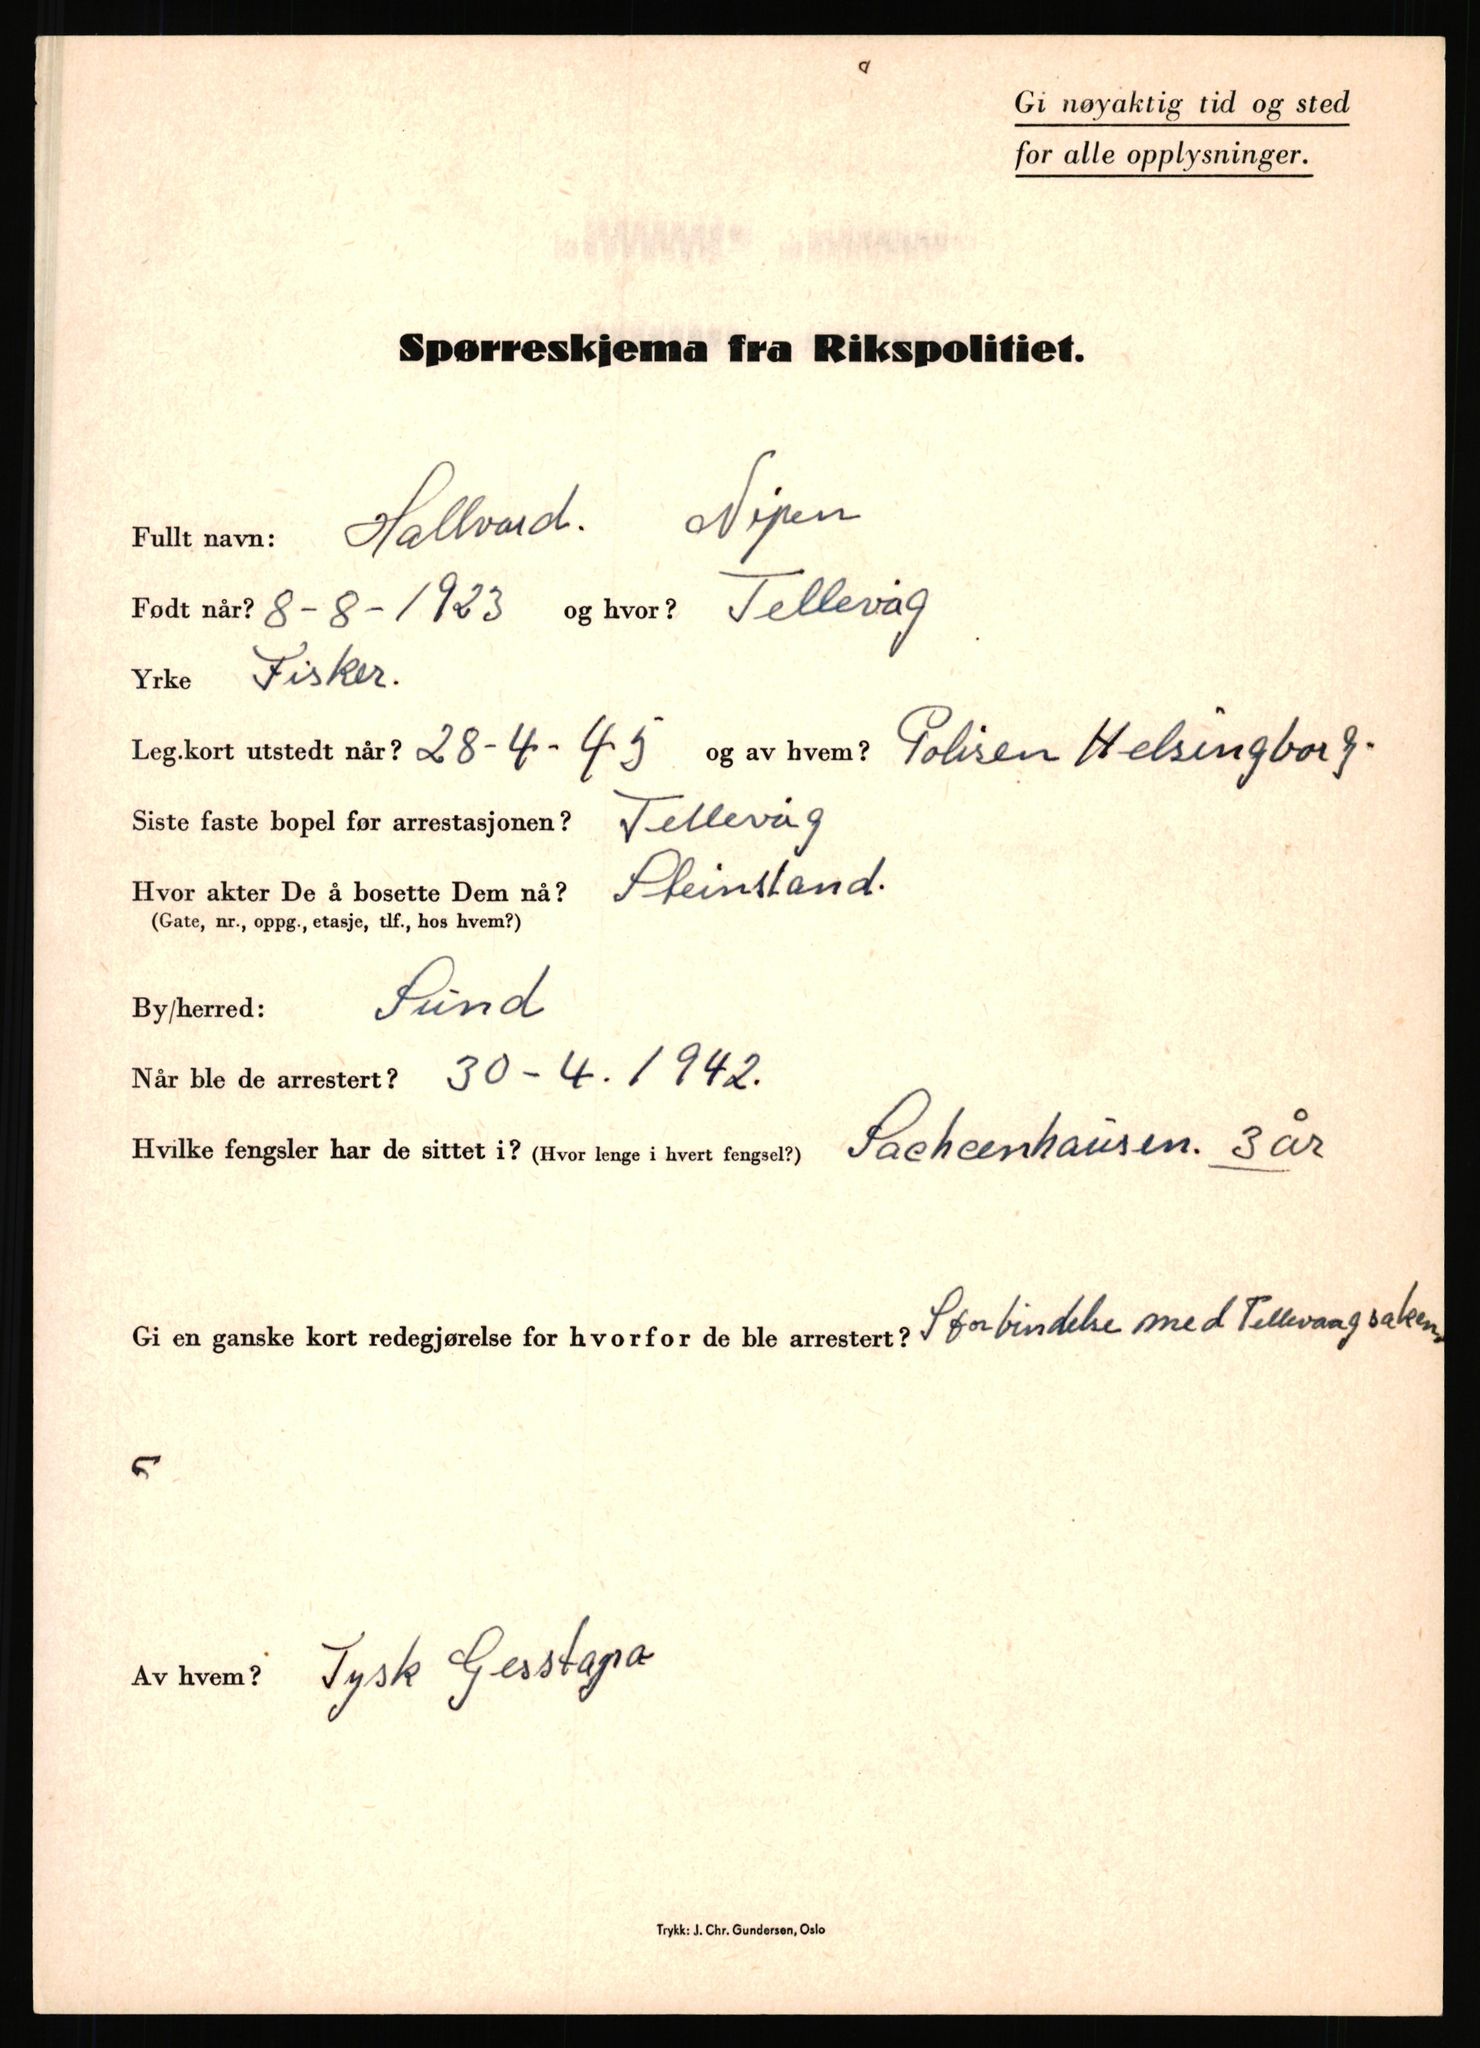 Gi nøyaktig tid og sted
for alle opplysninger.
Spørreskjema fra Rikspolitiet.
Fullt navn: Hallvard. Nipen
Født når? 8-8-1923 og hvor? Tellevåg
Yrke Fisker.
Leg.kort utstedt når? 28-4-45 og av hvem? Polisen Helsingborg.
Siste faste bopel før arrestasjonen? Tellevåg
Hvor akter De å bosette Dem nå? Steinsland.
(Gate, nr., oppg., etasje, tlf., hos hvem?)
By/herred: Sund
Når ble de arrestert? 30-4.1942.
Hvilke fengsler har de sittet i? (Hvor lenge i hvert fengsel?) Sachcenhausen. 3 år
Gi en ganske kort redegjørelse for hvorfor de ble arrestert? I forbindelse med Tellevaagsaken.
Av hvem? Tysk Gesstapo
Trykk: J. Chr. Gundersen, Oslo